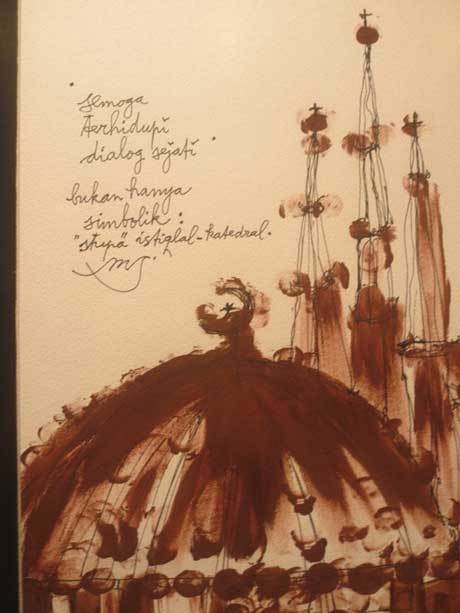 "semoga
terhidupi
dialog sejati"
bukan hanya
simbolik:
"stupa" istiqlal-katedral.